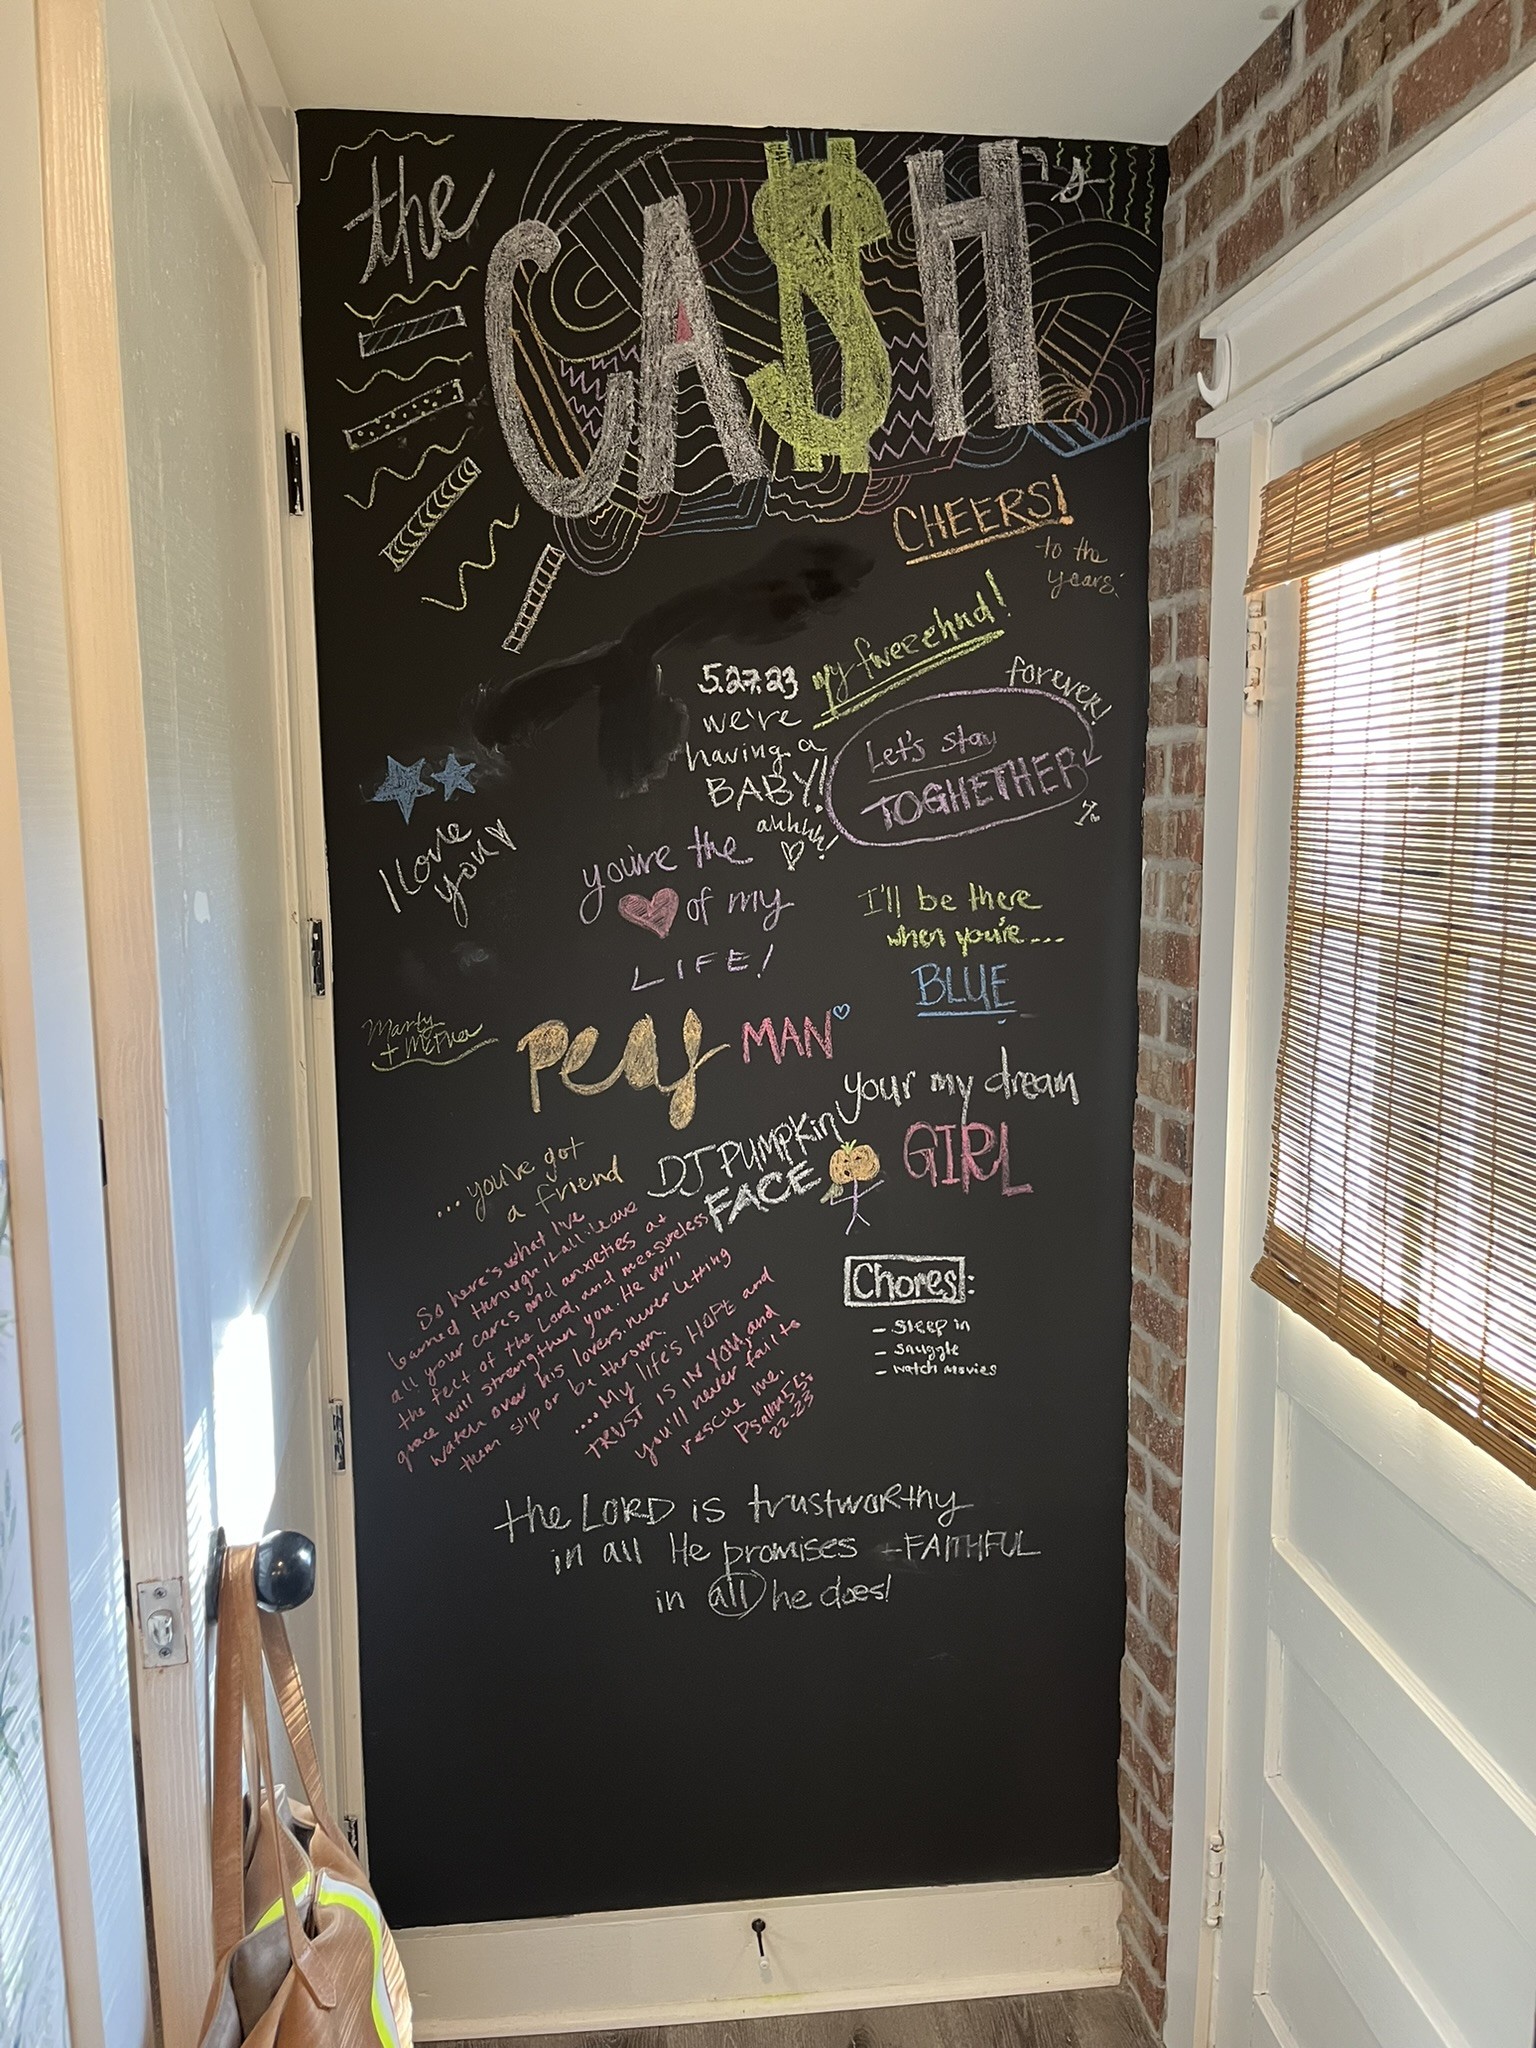 the
CA$H's
CHEERS!
to the
years!
my fweeehnd!
5.27.23
we're
having a
BABY!
ahhhh!
forever!
Let's stay
TOGHETHER
I love
you
you're the
of my
LIFE!
I'll be there
when you're...
BLUE
Marty
+ McPhee
Peas MAN
your my dream
GIRL
DJ PUMPKin
FACE
...you've got
a friend
So here's what I've
learned through it all: Leave
all your cares and anxieties at
the feet of the Lord, and measureless
grace will strengthen you. He will
watch over his lovers, never letting
them slip or be thrown.
....My life's HOPE and
TRUST IS IN YOU, and
you'll never fail to
rescue me.
Psalm 55:
22-23
Chores:
- Sleep in
- snuggle
- watch movies
the LORD is trustworthy
in all He promises + FAITHFUL
in all he does!